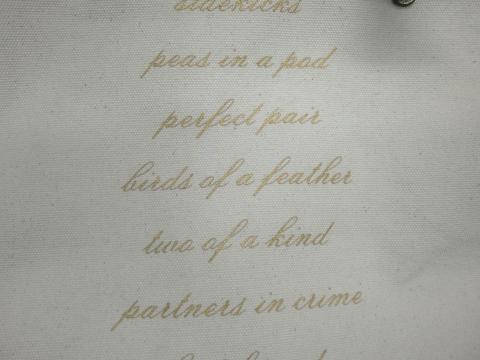 sidekicks
peas in a pod
perfect pair
birds of a feather
two of a kind
partners in crime